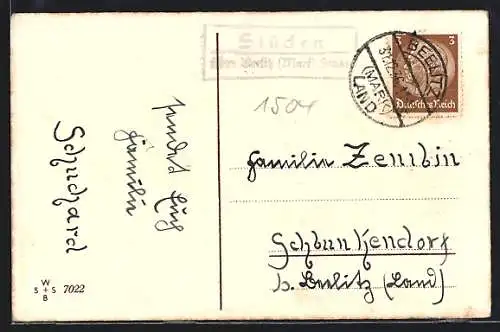 Stücken
über Beelitz (Mark) Land
1504
BEELITZ
(MARK)
LAND
3
3
Deutsches Reich
sendet Euch
Familie
Schuchard
Familie Zembin
Schlunkendorf
b. Beelitz (Land)
W
S + S 7022
B